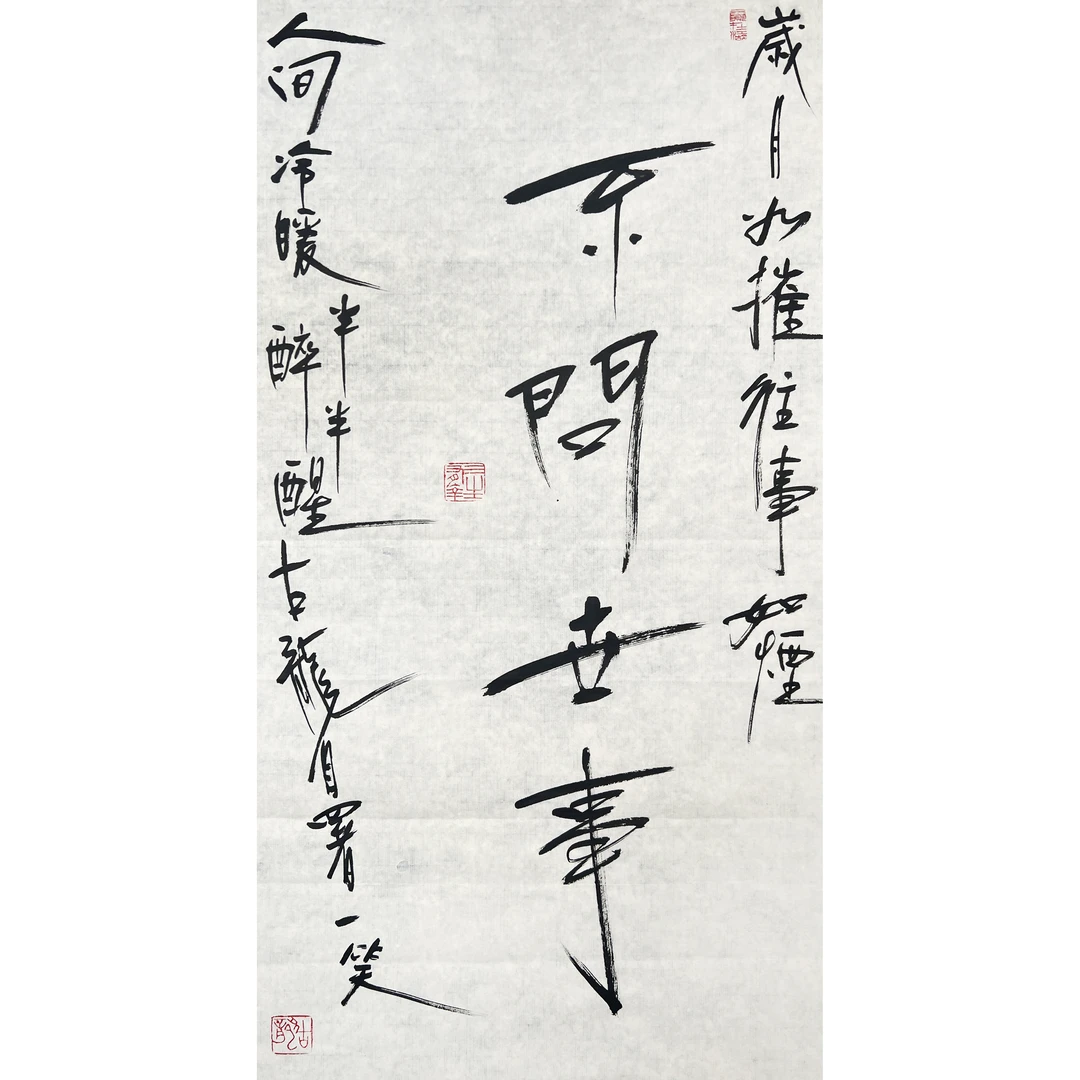 歲月如摧往事如煙
不問世事
人间冷暖半醉半醒古龍自署一笑